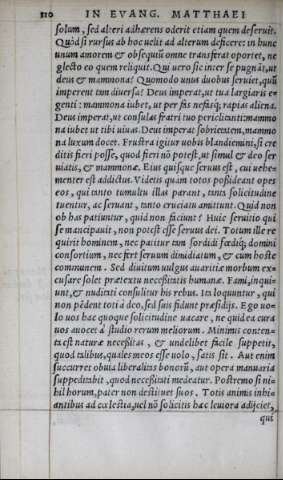 110 IN EVANG. MATTHAEI
solum, sed alteri adhærens oderit etiam quem deseruit.
Quòd si rursus ab hoc uelit ad alterum deficere: in hunc
unum amorem & obsequiũ omne transferat oportet, ne
glecto eo quem reliquit. Qui uero sic inter se pugnãt, ut
deus & mammona? Quomodo unus duobus seruiet, quũ
imperent tam diuersa? Deus imperat, ut tua largiaris e-
genti: mammona iubet, ut per fas nefasq; rapias aliena.
Deus imperat, ut consulas fratri tuo periclitanti: mammo
na iubet ut tibi uiuas. Deus imperat sobrietatem, mammo
na luxum docet. Frustra igitur uobis blandiemini, si cre
ditis fieri posse, quod fieri nõ potest, ut simul & deo ser
uiatis, & mammonæ. Eius quisque seruus est, cui uehe-
menter est addictus. Videtis quam totos possideant opes
eos, qui tanto tumultu illas parant, tanta solicitudine
tuentur, ac seruant, tanto cruciatu amittunt. Quid non
ob has patiuntur, quid non faciunt? Huic seruitio qui
se mancipauit, non potest esse seruus dei. Totum ille re
quirit hominem, nec patitur tam sordidi fœdiq; domini
consortium, nec fert seruum dimidiatum, & cum hoste
communem. Sed diuitum uulgus auaritiæ morbum ex-
cusare solet prætextu necessitatis humanæ. Fami, inqui-
unt, & nuditati consulitur his rebus. Ita loquuntur, qui
non pẽdent toti a deo, sed suis fidunt præsidijs. Ego uo-
lo uos hac quoque solicitudine uacare, ne quid ea cura
uos auocet a studio rerum meliorum. Minimis conten-
ta est naturæ necessitas, & undelibet facile suppetit,
quod talibus, quales meos esse uolo, satis sit. Aut enim
succurret obuia liberalitas bonorũ, aut opera manuaria
suppeditabit, quod necessitati medeatur. Postremo si ni-
hil horum, pater non destituet suos. Totis animis inhi-
antibus ad cœlestia, uel nõ solicitis hæc leuiora adijciet,
qui